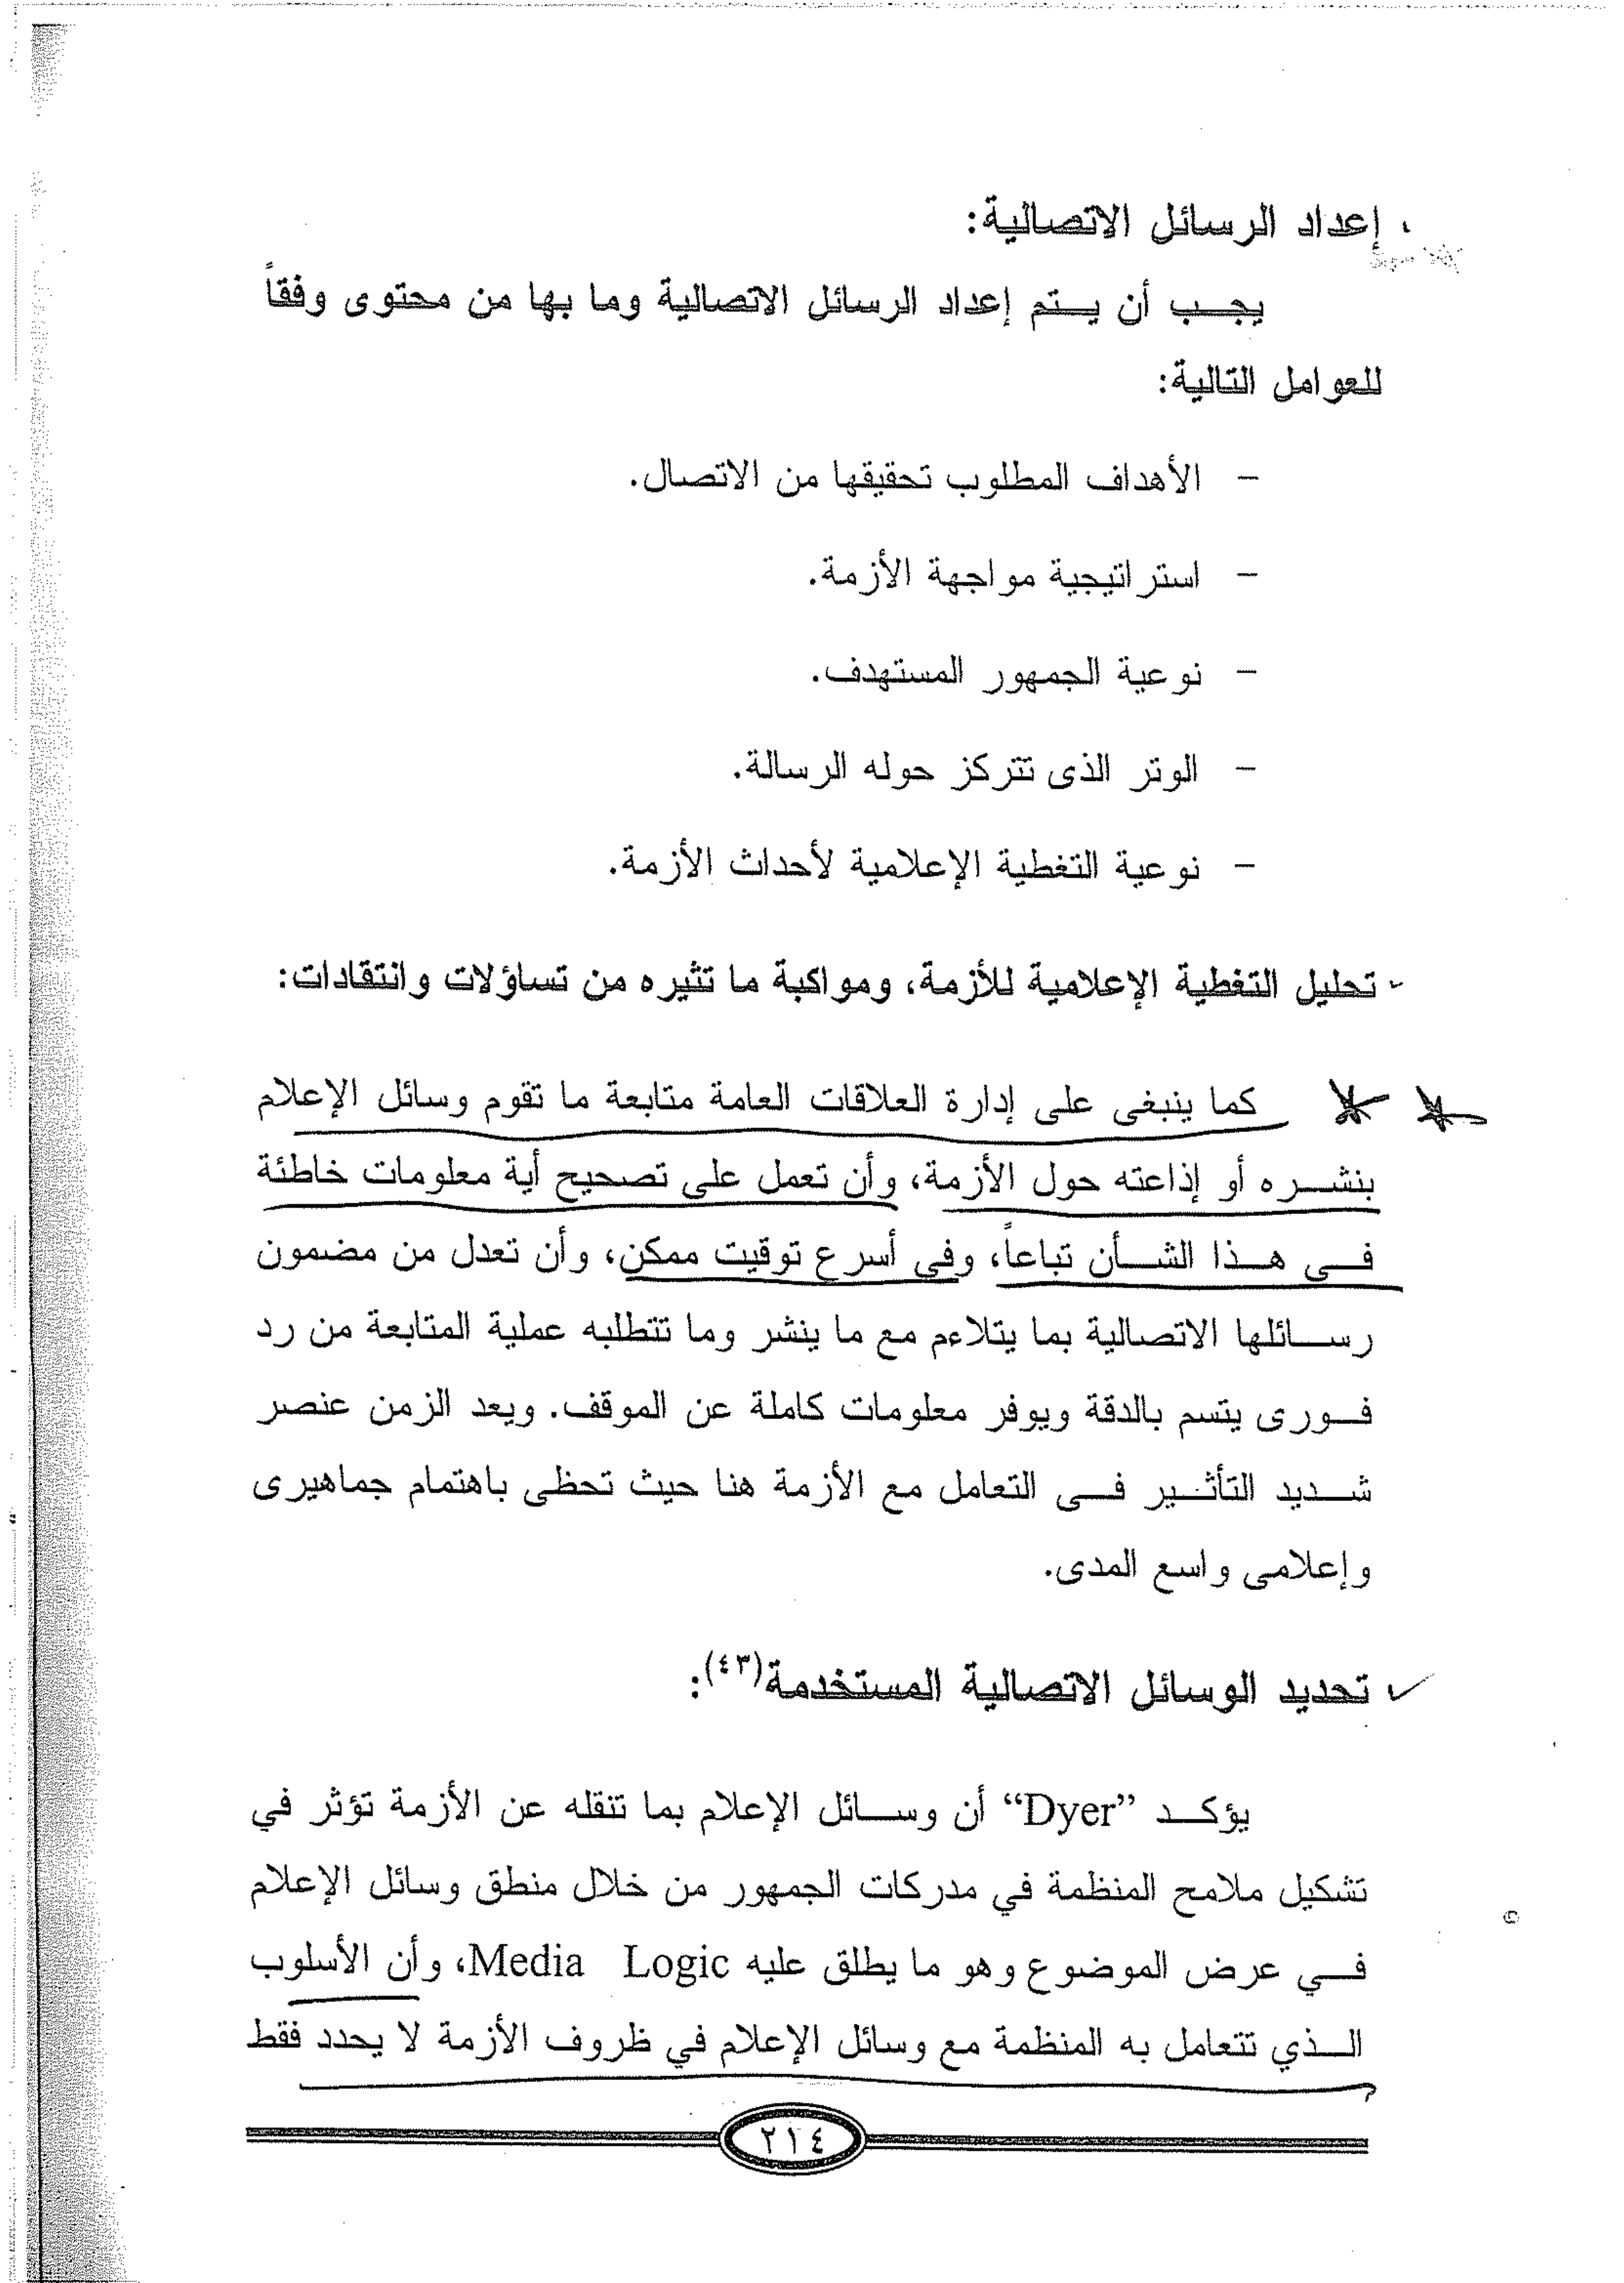 إعداد الرسائل الاتصالية:
يجب أن يتم إعداد الرسائل الاتصالية وما بها من محتوى وفقاً
للعوامل التالية:
- الأهداف المطلوب تحقيقها من الاتصال.
- استراتيجية مواجهة الأزمة.
- نوعية الجمهور المستهدف.
- الوتر الذى تتركز حوله الرسالة.
- نوعية التغطية الإعلامية لأحداث الأزمة.
- تحليل التغطية الإعلامية للأزمة، ومواكبة ما تثيره من تساؤلات وانتقادات:
كما ينبغى على إدارة العلاقات العامة متابعة ما تقوم وسائل الإعلام
بنشره أو إذاعته حول الأزمة، وأن تعمل على تصحيح أية معلومات خاطئة
فى هذا الشأن تباعاً، وفى أسرع توقيت ممكن، وأن تعدل من مضمون
رسائلها الاتصالية بما يتلاءم مع ما ينشر وما تتطلبه عملية المتابعة من رد
فورى يتسم بالدقة ويوفر معلومات كاملة عن الموقف. ويعد الزمن عنصر
شديد التأثير فى التعامل مع الأزمة هنا حيث تحظى باهتمام جماهيرى
وإعلامى واسع المدى.
✓ تحديد الوسائل الاتصالية المستخدمة(٤٣):
يؤكد “Dyer” أن وسائل الإعلام بما تنقله عن الأزمة تؤثر في
تشكيل ملامح المنظمة في مدركات الجمهور من خلال منطق وسائل الإعلام
في عرض الموضوع وهو ما يطلق عليه Media Logic، وأن الأسلوب
الذي تتعامل به المنظمة مع وسائل الإعلام في ظروف الأزمة لا يحدد فقط
٢١٤